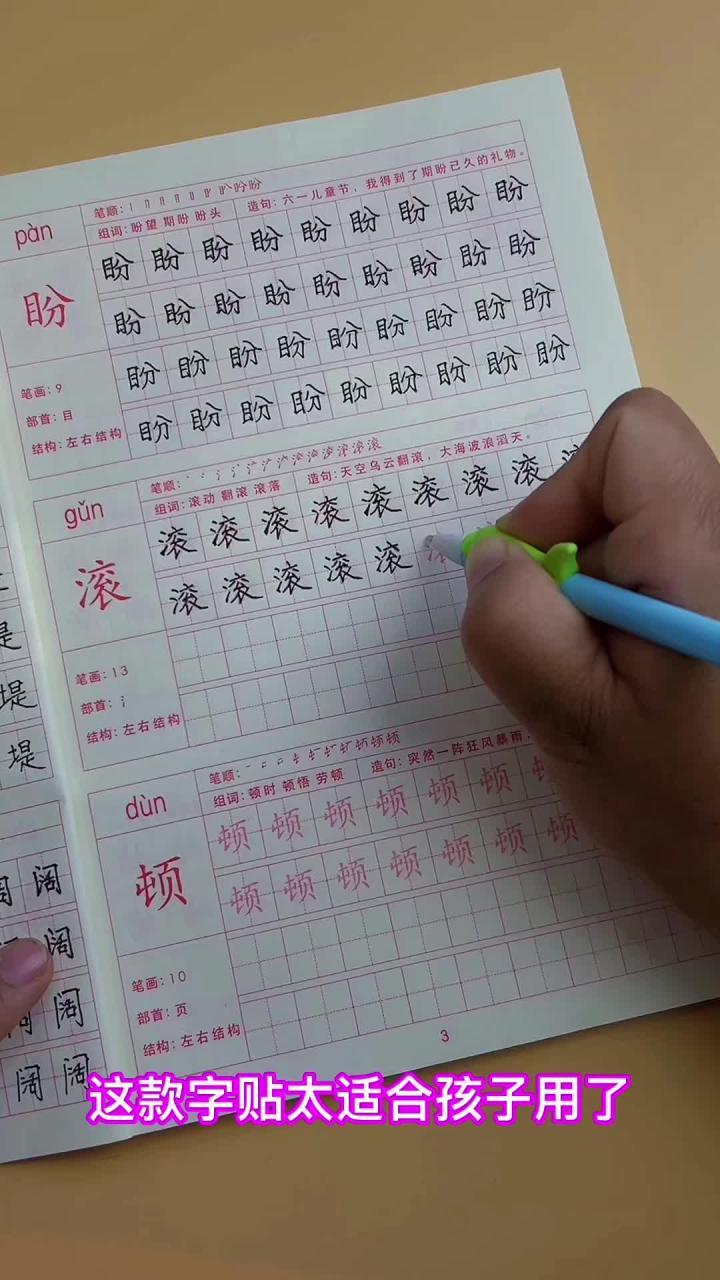 pàn
笔顺:
组词: 盼望 期盼 盼头
造句: 六一儿童节，我得到了期盼已久的礼物。
盼
盼 盼 盼 盼 盼 盼 盼 盼 盼
盼 盼 盼 盼 盼 盼 盼 盼 盼
盼 盼 盼 盼 盼 盼 盼 盼 盼
盼 盼 盼 盼 盼 盼 盼 盼 盼
笔画: 9
部首: 目
结构: 左右结构
gǔn
笔顺:
组词: 滚动 翻滚 滚落
造句: 天空乌云翻滚，大海波浪滔天。
滚
滚 滚 滚 滚 滚 滚 滚 滚
滚 滚 滚 滚 滚
笔画: 13
部首: 氵
结构: 左右结构
dùn
笔顺:
组词: 顿时 顿悟 劳顿
造句: 突然一阵狂风暴雨，
顿
顿 顿 顿 顿 顿 顿
顿 顿 顿 顿 顿 顿 顿
笔画: 10
部首: 页
结构: 左右结构
3
堤
堤
堤
阔 阔
阔
阔 阔
阔 阔
这款字贴太适合孩子用了